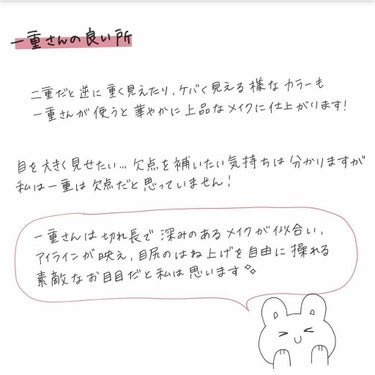 一重さんの良い所
二重だと逆に重く見えたり、ケバく見える様なカラーも
一重さんが使うと華やかに上品なメイクに仕上がります!
目を大きく見せたい...欠点を補いたい気持ちは分かりますが
私は一重は欠点だと思っていません!
一重さんは切れ長で深みのあるメイクが似合い、
アイラインが映え、目尻のはね上げを自由に操れる
素敵なお目目だと私は思います